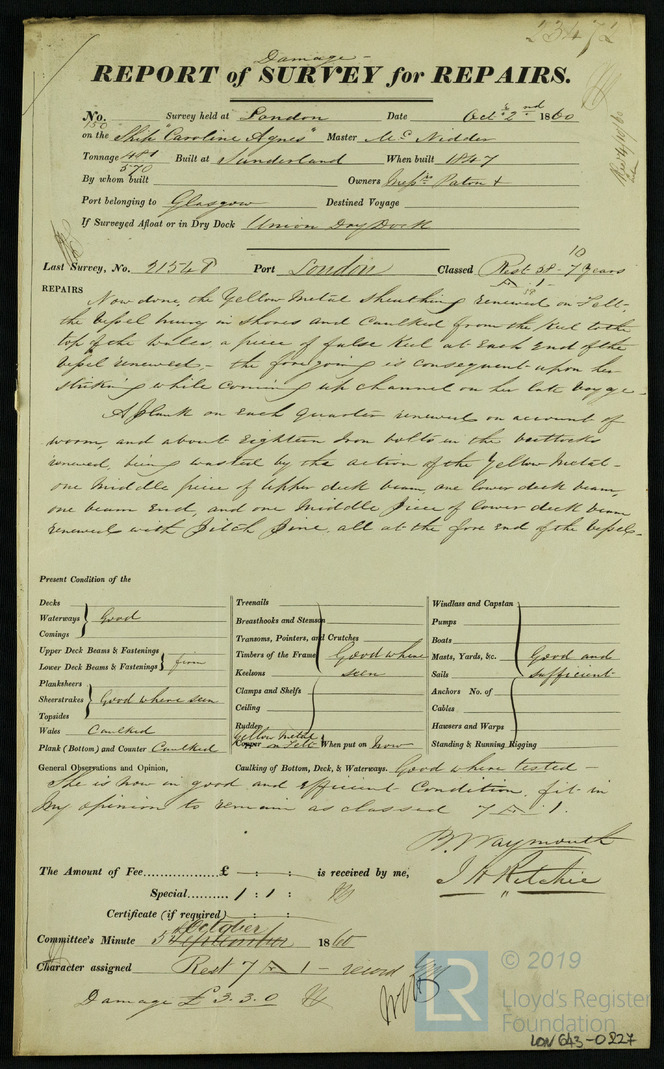 23472
Damage -
REPORT of SURVEY for REPAIRS.
No. 150 Survey held at London Date Oct.r 2nd 1860
on the Ship "Caroline Agnes" Master Mc Nidder
Tonnage 481 570 Built at Sunderland When built 1847
By whom built Owners Mess.rs Paton &
Port belonging to Glasgow Destined Voyage
If Surveyed Afloat or in Dry Dock Union Dry Dock
Last Survey, No. 21548 Port London Classed Rest. 58 - 7 Years 10
A 1
REPAIRS
Now done, the Yellow Metal Sheathing renewed on Felt -
the Vessel hung in shores and Caulked from the Keel to the
top of the Wales, a piece of false Keel at each End of the
Vessel renewed, - the foregoing is consequent upon her
striking while coming up channel on her late Voyage -
A plank on each quarter renewed on account of
worm, and about Eighteen Iron bolts in the buttocks
renewed, being wasted by the action of the Yellow Metal -
one Middle piece of Upper deck beam, one lower deck beam,
one beam End, and one Middle Piece of lower deck beam
renewed with Pitch Pine, all at the fore End of the Vessel -
Present Condition of the
Decks
Waterways Good
Comings
Upper Deck Beams & Fastenings
Lower Deck Beams & Fastenings firm
Planksheers
Sheerstrakes Good where seen
Topsides
Wales Caulked
Plank (Bottom) and Counter Caulked
Treenails
Breasthooks and Stemson
Transoms, Pointers, and Crutches
Timbers of the Frame Good where
Keelsons seen
Clamps and Shelfs
Ceiling
Rudder
Yellow Metal
Copper on Felt When put on Now
Windlass and Capstan
Pumps
Boats
Masts, Yards, &c. Good and
Sails sufficient
Anchors No. of
Cables
Hawsers and Warps
Standing & Running Rigging
General Observations and Opinion, Caulking of Bottom, Deck, & Waterways. Good where tested -
She is now in good and efficient Condition, fit in
my opinion to remain as classed 7 A 1.
B. Waymouth
J H Ritchie
The Amount of Fee £ - : - : is received by me,
Special 1 : 1 :
Certificate (if required) : :
October
Committee's Minute 5 September 1860
Character assigned Rest 7 A 1 - record
Damage £3.3.0
LR © 2019
Lloyd's Register
Foundation
LON 643-0227